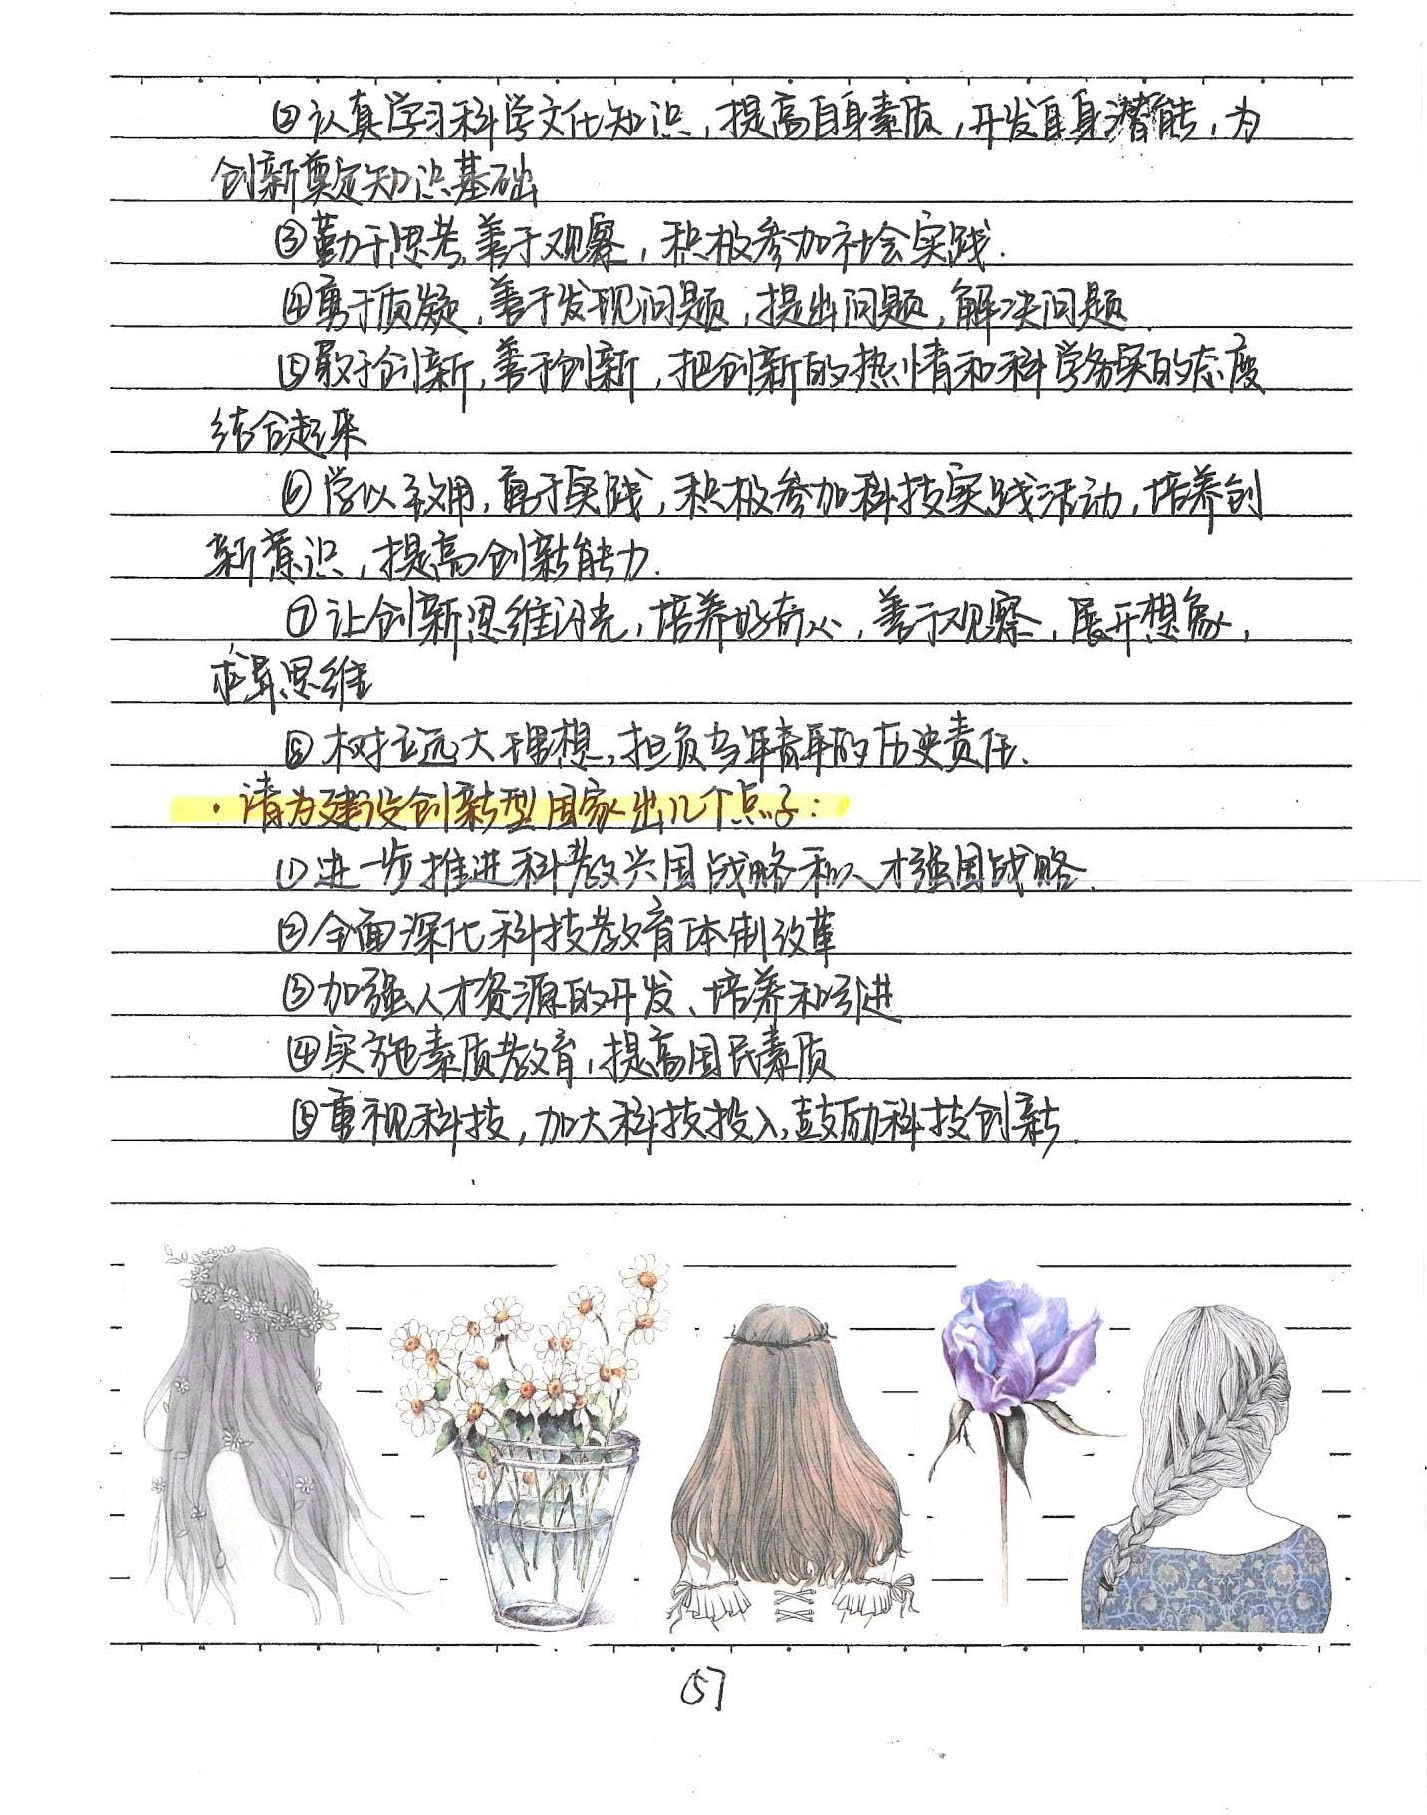 ②认真学习科学文化知识,提高自身素质,开发自身潜能,为
创新奠定知识基础
③勤于思考,善于观察,积极参加社会实践.
④勇于质疑,善于发现问题,提出问题,解决问题.
⑤敢于创新,善于创新,把创新的热情和科学务实的态度
结合起来
⑥学以致用,勇于实践,积极参加科技实践活动,培养创
新意识,提高创新能力.
⑦让创新思维闪光,培养好奇心,善于观察,展开想象,
求异思维
⑧树立远大理想,担负当年青年的历史责任.
·请为建设创新型国家出几个点子:
①进一步推进科教兴国战略和人才强国战略.
②全面深化科技教育体制改革
③加强人才资源的开发、培养和引进
④实施素质教育,提高国民素质
⑤重视科技,加大科技投入,鼓励科技创新.
57